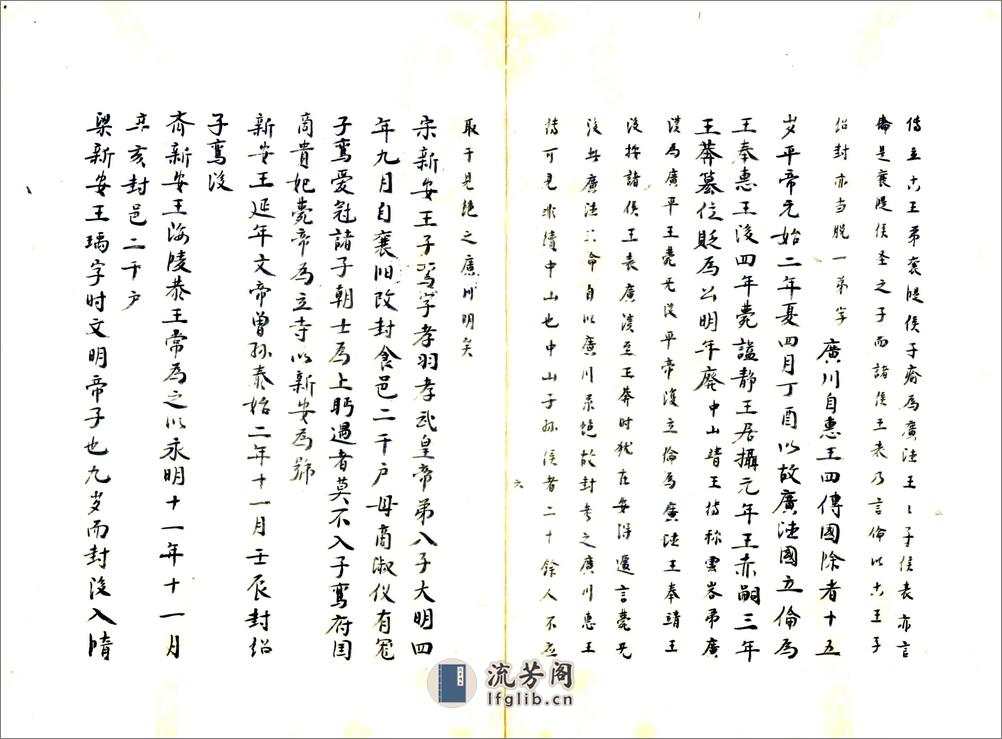 傳立古王弟襃隄侯子瘉爲廣德王王子侯表亦言
倫是襃隄侯圣之子而諸侯王表乃言倫以古王子
紹封亦当脱一弟字 廣川自惠王四傳國除者十五
岁平帝元始二年夏四月丁酉以故廣德國立倫爲
王奉惠王後四年薨諡靜王居攝元年王赤嗣三年
王莽篡位貶爲公明年廢中山靖王傳称雲客弟廣
漢爲廣平王薨无後平帝復立倫爲廣德王奉靖王
後按諸侯王表廣漢至王莽时犹在安得遽言薨无
後廣德之命自以廣川
後封者之廣川惠王
傳可見非續中山也中山子孙侯者二十餘人不应
六
取于見絶之廣川明矣
宋新安王子鸾字孝羽孝武皇帝第八子大明四
年九月自襄阳改封食邑二千户母商淑仪有寵
子鸾爱冠諸子朝士爲上眄遇者莫不入子鸾府国
商貴妃薨帝爲立寺以新安爲號
新安王延年文帝曾孙泰始二年十一月壬辰封紹
子鸾後
齐新安王海陵恭王常爲之以永明十一年十一月
辛亥封邑二千户
梁新安王瑀字时文明帝子也九岁而封後入隋
流芳阁
lfglib.cn